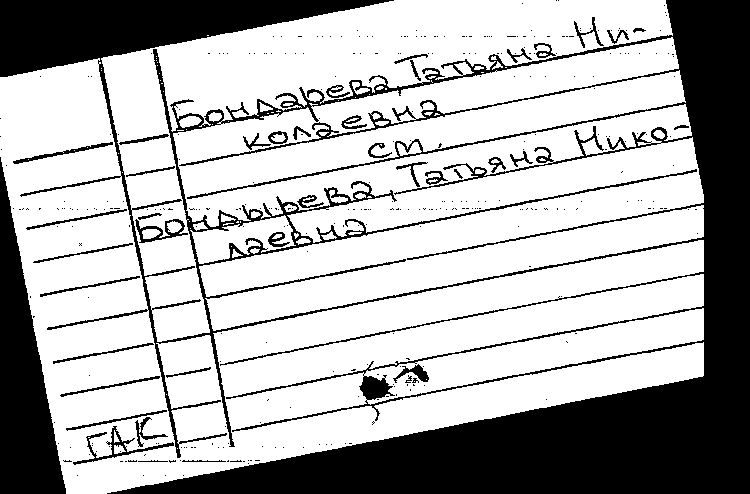 Бондарева, Татьяна Ни-
колаевна
см.
Бондырева, Татьяна Нико-
лаевна
ГАК